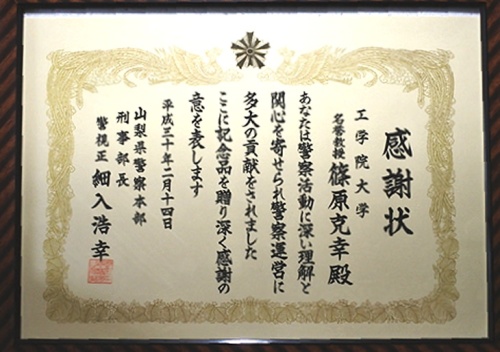 感謝状
工学院大学
名誉教授 篠原克幸殿
あなたは警察活動に深い理解と
関心を寄せられ警察運営に
多大の貢献をされました
ここに記念品を贈り深く感謝の
意を表します
平成三十年二月十四日
山梨県警察本部
刑事部長
警視正 細入浩幸